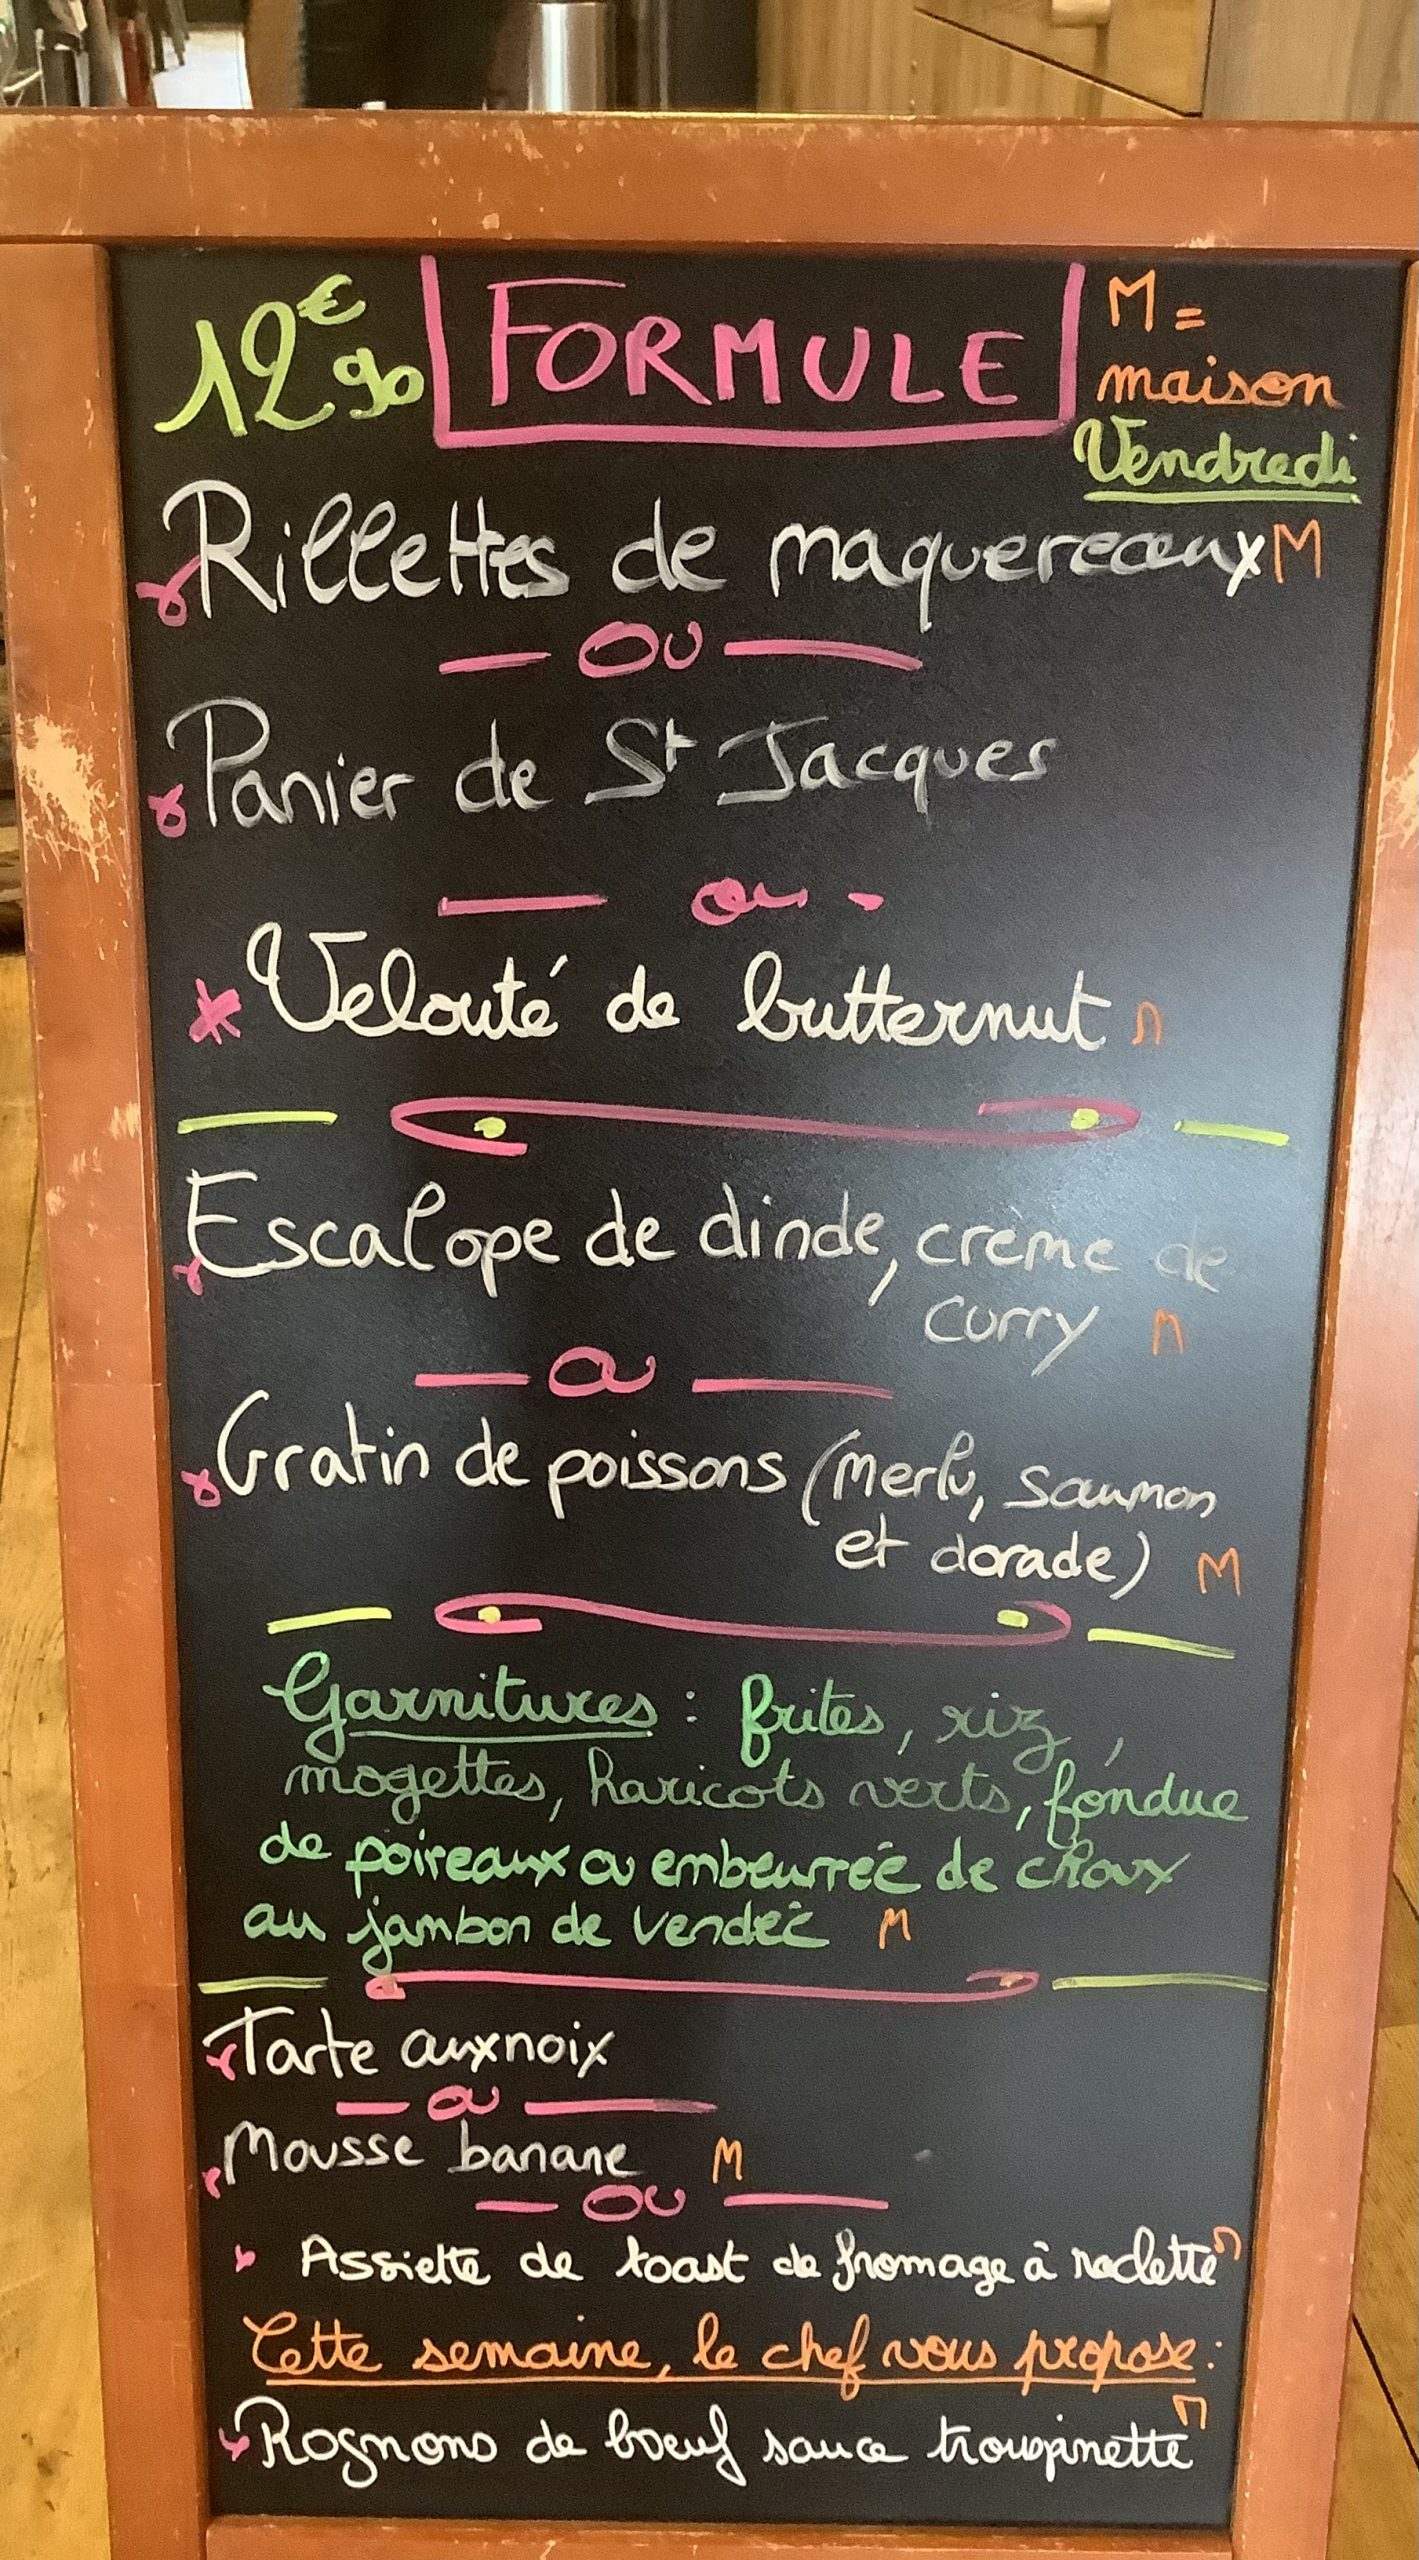 12€90 FORMULE M = maison
Vendredi
Rillettes de maquereaux M
ou
Panier de St Jacques
ou
Velouté de butternut M
Escalope de dinde, creme de
curry M
ou
Gratin de poissons (Merlu, saumon
et dorade) M
Garnitures : frites, riz,
mogettes, haricots verts, fondue
de poireaux ou embeurrée de choux
au jambon de Vendée M
Tarte aux noix
ou
Mousse banane M
ou
Assiette de toast de fromage à raclette M
Cette semaine, le chef vous propose :
Rognons de boeuf sauce troupinette M